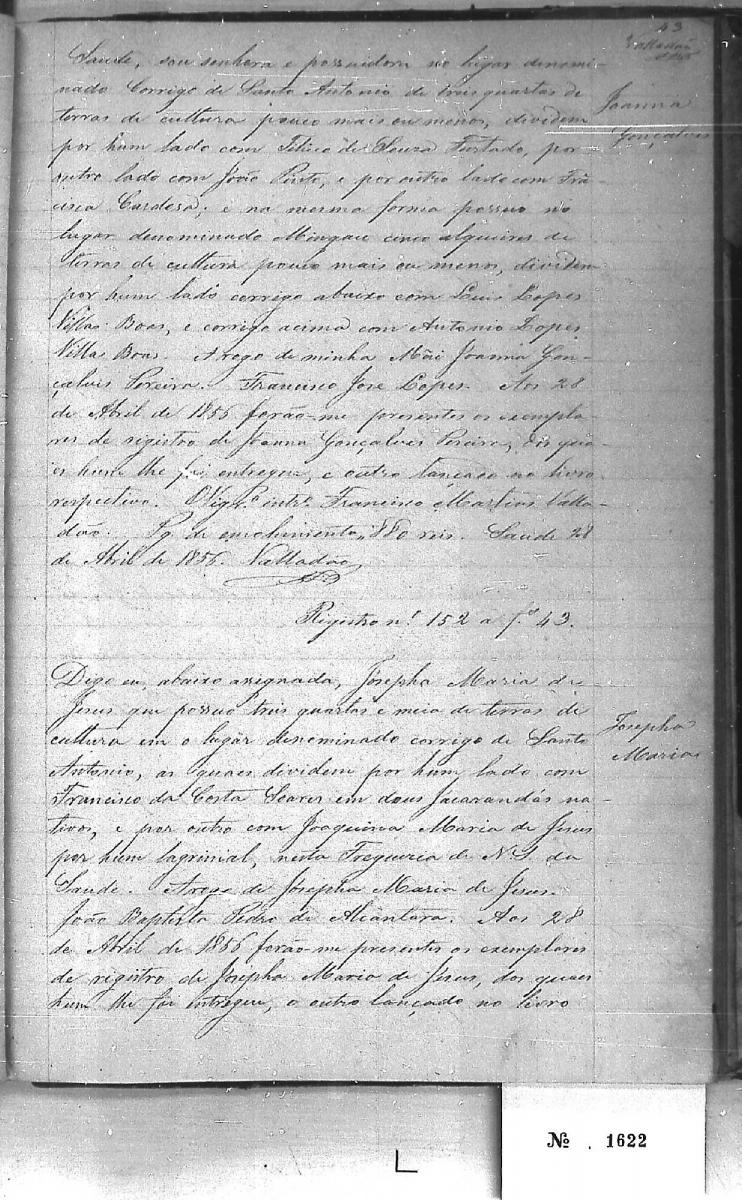 43
Valladão
Saude, sou senhora e possuidora no lugar denomi-
nado Corrigo de Santo Antonio de tres quartas de
terras de cultura pouco mais ou menos, dividem
por hum lado com Felicio de Souza Furtado, por
outro lado com João Pinto, e por outro lado com Frâ-
cisca Cardosa; e na mesma forma possuo no
lugar denominado Mingau cinco alqueires de
terras de cultura pouco mais ou menos, dividem
por hum lado corrigo abaixo com Luis Lopes
Villas Boas, e corrigo acima com Antonio Lopes
Villas Boas. A rogo de minha Mãi Joanna Gon-
çalvis Pereira. Francisco José Lopes. Aos 28
de Abril de 1856 forão-me presentes os exempla-
res de registro de Joanna Gonçalves Pereira, dos qua-
es hum lhe foi entregue, e outro lançado no livro
respectivo. O Vigrº intrº Francisco Martins Valla-
dão. Pg. de emolumento 880 reis. Saude 28
de Abril de 1856. Valladão
Joanna
Gonçalves
Registro nº 152 a fº 43.
Digo eu, abaixo assignada, Josepha Maria de
Jesus que possuo tres quartas e meia de terras de
cultura em o lugar denominado corrigo de Santo
Antonio, as quaes dividem por hum lado com
Francisco da Costa Soares em dous Jacarandás na-
tivos, e por outro com Joaquina Maria de Jesus
por hum lagrimal, nesta Freguezia de N. S. da
Saude. A rogo de Josepha Maria de Jesus.
João Baptista Pedro de Alcantara. Aos 28
de Abril de 1856 forão-me presentes os exemplares
de registro de Josepha Maria de Jesus, dos quaes
hum lhe foi entregue, o outro lançado no livro
Josepha
Maria
№ . 1622